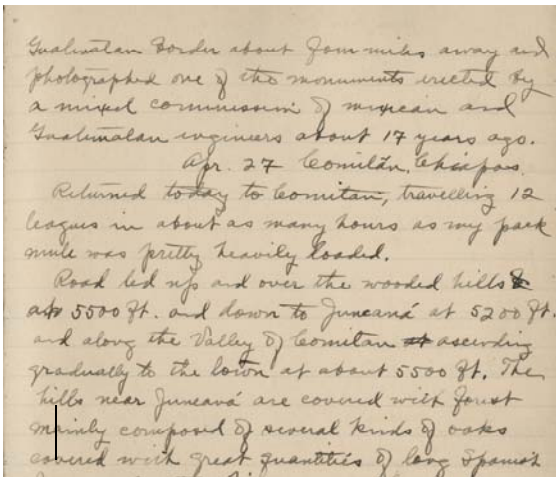 Gualimalan border about four miles away and
photographed one of the monuments erected by
a mixed commission of mexican and
Gualimalan engineers about 17 years ago.
Apr. 27 Comitán, Chiapas.
Returned today to Comitan, travelling 12
leagues in about as many hours as my pack
mule was pretty heavily loaded.
Road led up and over the wooded hills
at 5500 ft. and down to Juncaná at 5200 ft.
and along the Valley of Comitan ascending
gradually to the town at about 5500 ft. The
hills near Juncaná are covered with forest
mainly composed of several kinds of oaks
covered with great quantities of long Spanish